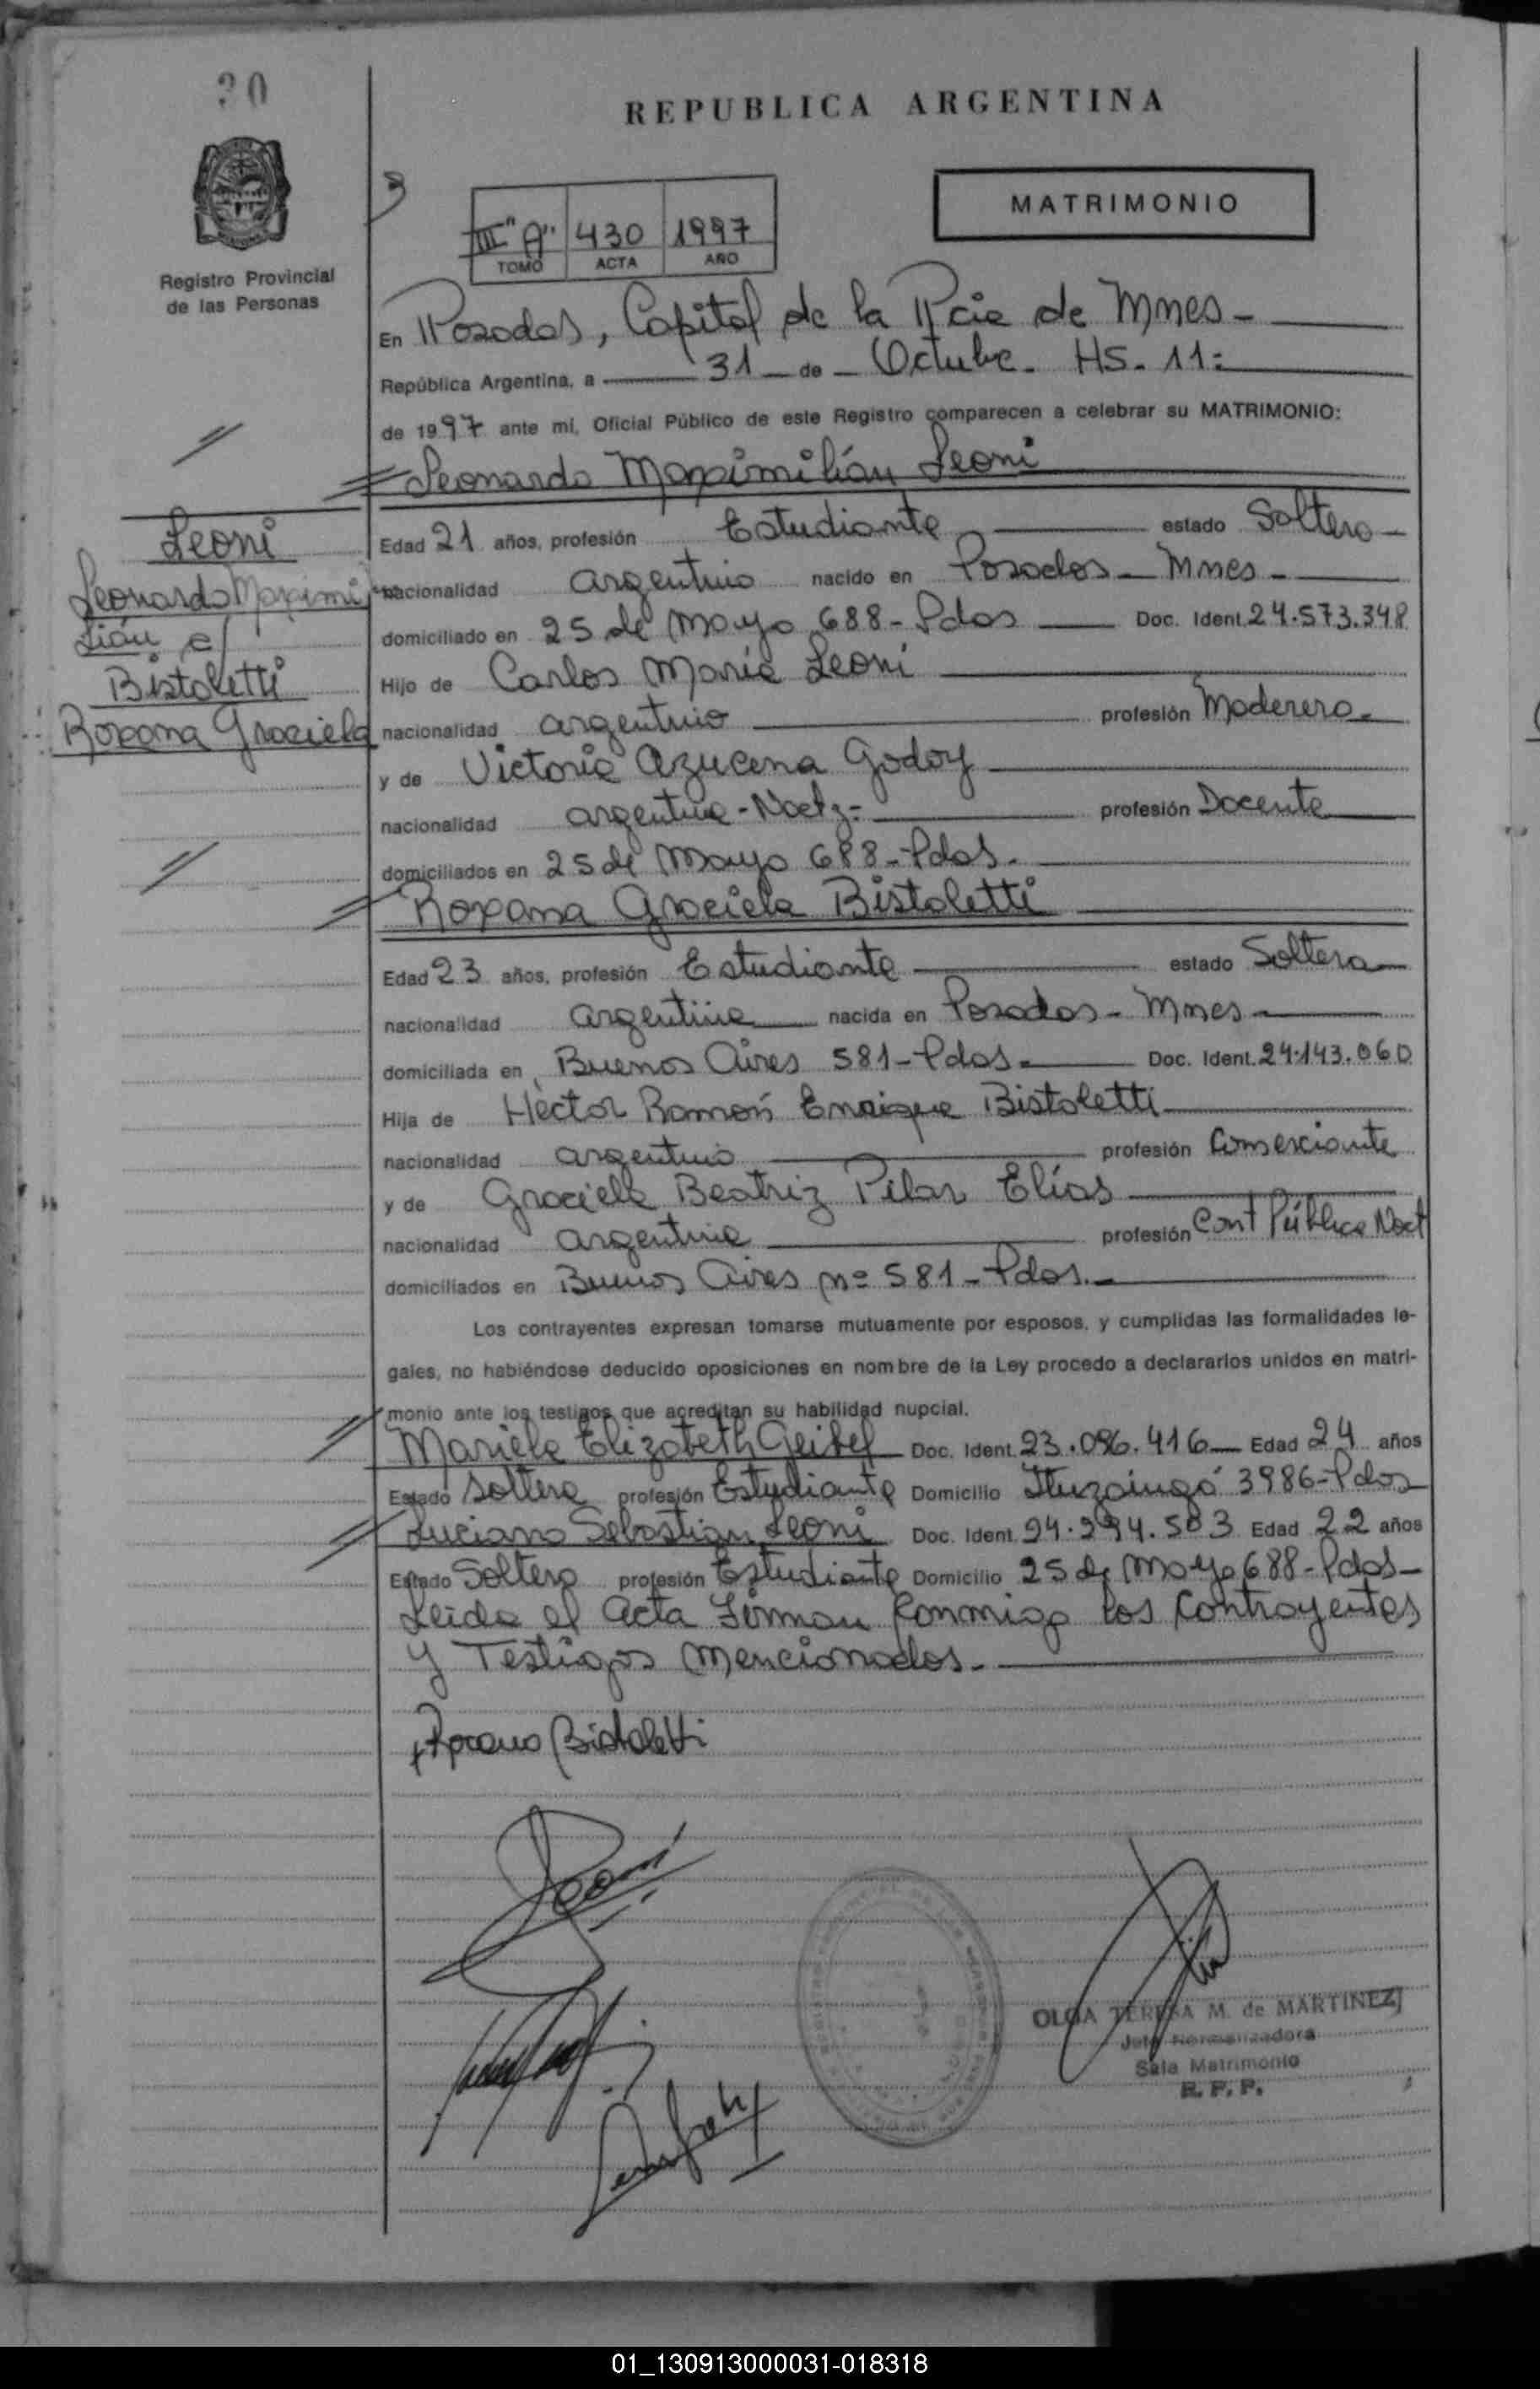 30
REPUBLICA ARGENTINA
MATRIMONIO
III "A" 430 1997
TOMO ACTA AÑO
Registro Provincial
de las Personas
En Posadas, Capital de la Pcia de Mnes-
República Argentina, a 31 de Octubre. HS. 11:
de 1997 ante mí, Oficial Público de este Registro comparecen a celebrar su MATRIMONIO:
Leonardo Maximilián Leoni
Leoni
Leonardo Maximi
lián c/
Bistoletti
Roxana Graciela
Edad 21 años, profesión Estudiante estado Soltero
nacionalidad argentino nacido en Posadas - Mnes-
domiciliado en 25 de Mayo 688- Pdas Doc. Ident. 24.573.348
Hijo de Carlos María Leoni
nacionalidad argentino profesión Maderero-
y de Victoria Azucena Godoy
nacionalidad argentina - profesión Docente
domiciliados en 25 de Mayo 688- Pdas.
Roxana Graciela Bistoletti
Edad 23 años, profesión Estudiante estado Soltera
nacionalidad argentina nacida en Posadas - Mnes-
domiciliada en Buenos Aires 581- Pdas. Doc. Ident. 24.143.060
Hija de Héctor Ramón Enrique Bistoletti
nacionalidad argentino profesión Comerciante
y de Graciela Beatriz Pilar Elías
nacionalidad argentina profesión Cont Pública Nact
domiciliados en Buenos Aires nº 581- Pdas.-
Los contrayentes expresan tomarse mutuamente por esposos, y cumplidas las formalidades le-
gales, no habiéndose deducido oposiciones en nombre de la Ley procedo a declararlos unidos en matri-
monio ante los testigos que acreditan su habilidad nupcial.
Mariela Elizabeth Geibel Doc. Ident. 23.096.416 Edad 24 años
Estado Soltera profesión Estudiante Domicilio Ituzaingó 3986- Pdas
Luciano Sebastian Leoni Doc. Ident. 24.294.503 Edad 22 años
Estado Soltero profesión Estudiante Domicilio 25 de Mayo 688- Pdas-
Leida el Acta Firman Conmigo los Contrayentes
y Testigos Mencionados.-
Roxana Bistoletti
Leoni
OLGA TERESA M. de MARTINEZ
Jefe Normalizadora
Sala Matrimonio
R. P. P.
01_130913000031-018318